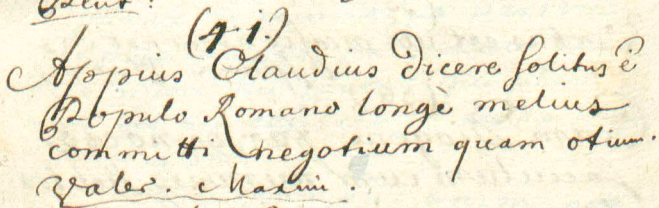 (41.)
Appius Claudius dicere solitus ē
Populo Romano longè melius
committi negotium quam otium.
Valer. Maxim.